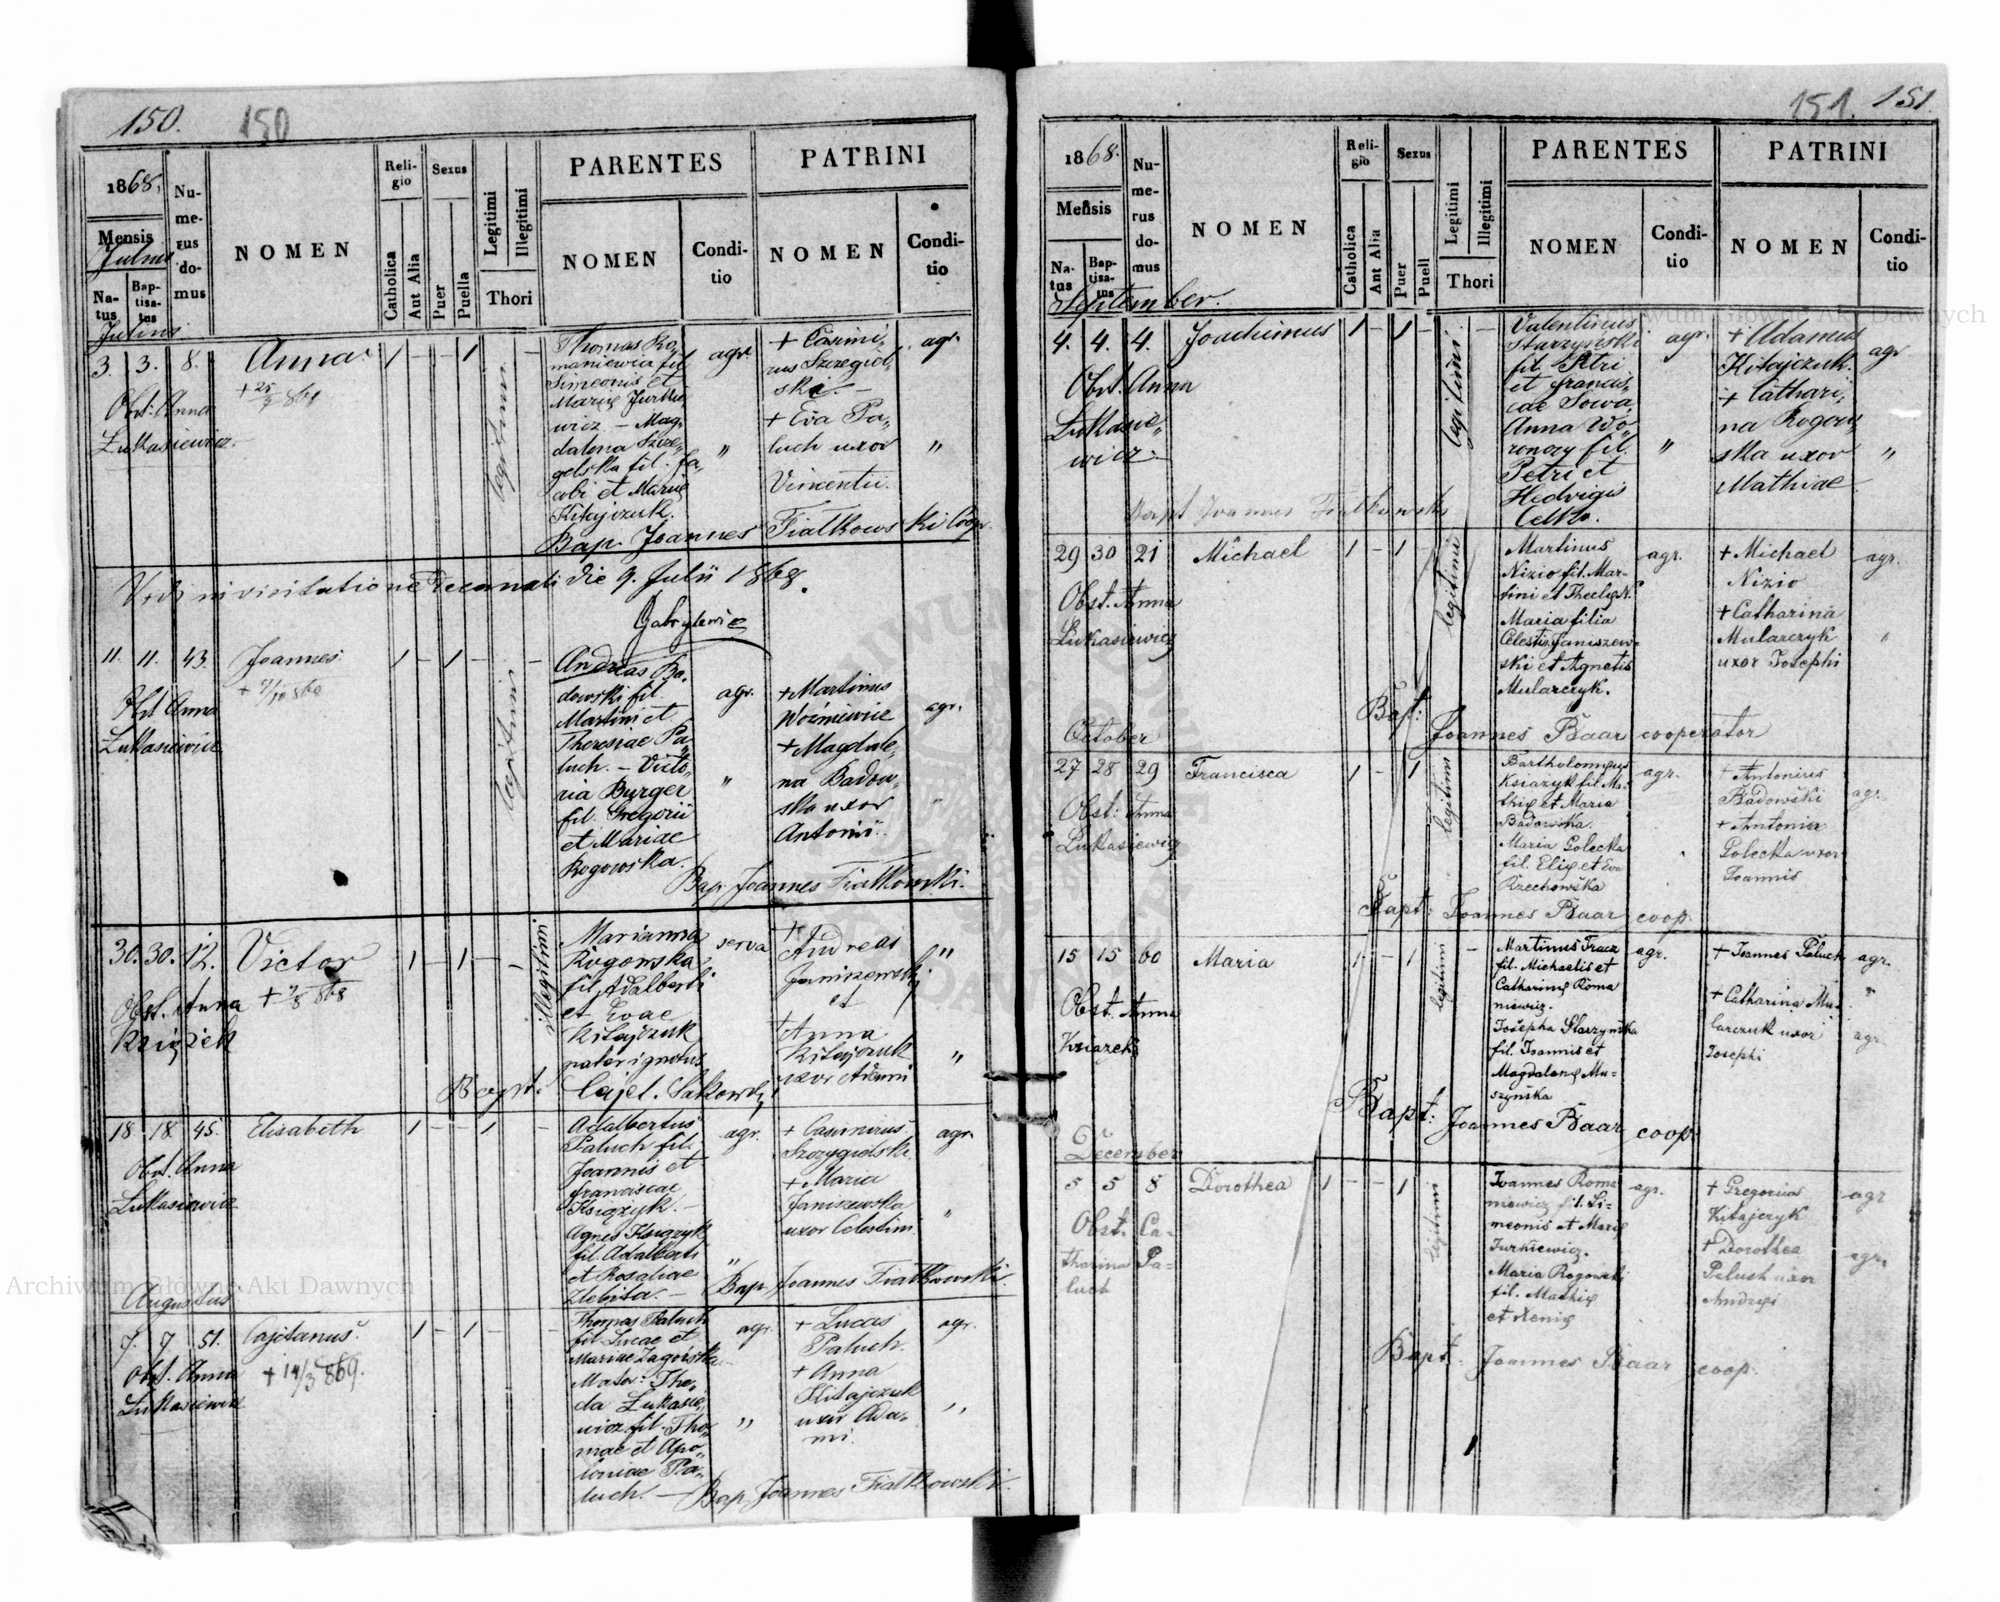 150. 150
1868.
Mensis
Julius
Natus
Baptisatus
Numerus domus
NOMEN
Religio
Catholica
Aut Alia
Sexus
Puer
Puella
Legitimi
Illegitimi
Thori
PARENTES
NOMEN
Conditio
PATRINI
NOMEN
Conditio
Julius
3. 3. 8. Anna. 1 - - 1 -
Obst. Anna
Łukasiewicz.
legitimi
Thomas Ro-
maniewicz fil.
Simeonis et
Marię Jurkie
wicz. - Mag-
dalena Szcze-
gelska fil. Ja-
cobi et Marię
Kitajczuk.
agr.
"
+ Casimi,
rus Szczegiel,
ski. -
+ Eva Pa-
luch uxor
Vincentii.
agr.
"
Bap. Joannes Fiałkowski Coop.
Vidi in visitatione Decanali die 9. Julii 1868.
Gabrylewicz
11. 11. 43. Joannes. 1 - 1 - -
+ 7/10 868
Obst Anna
Łukasiewicz
legitimi
Andreas Ba-
dowski fil.
Martini et
Theresiae Pa,
luch. - Victo-
ria Burger
fil. Gregorii
et Mariae
Rogowska.
agr.
"
+ Martinus
Woźniewicz
+ Magdale,
na Badow-
ska uxor
Antonii.
agr.
"
Bap. Joannes Fiałkowski.
30. 30. 12. Victor 1 - 1 - -
+ 7/8 868
Obst. Anna
Książek
illegitimi
Marianna
Rogowska
fil. Adalberti
et Evae
Kitajczuk
pater ignotus
serva
+
Andreas
Janiszewski
et
+ Anna
Kitajczuk
uxor Adami
"
"
Bapt. Cajet. Sakowski
18 18 45. Elisabeth 1 - - 1 -
Obst. Anna
Łukasiewicz
Adalbertus
Paluch fil.
Joannis et
franciscae
Książyk. -
Agnes Książyk
fil. Adalberti
et Rosaliae
Zlebita. -
agr.
"
+ Casimirus
Szczygielski
+ Maria
Janiszewska
uxor Celestini
agr.
"
Bap. Joannes Fiałkowski.
Augustus
7. 7 51. Cajetanus. 1 - 1 - -
+ 14/3 869.
Obst. Anna
Łukasiewicz
Thomas Paluch
fil. Lucae et
Mariae Zagórska
Mater: The,
da Łukasie,
wicz fil. Tho,
mae et Apo,
loniae Pa,
luch. -
agr.
"
+ Lucas
Paluch.
+ Anna
Kitajczuk
uxor Ada,
mi.
agr.
"
Bap. Joannes Fiałkowski.
151. 151.
1868.
Mensis
Natus
Baptisatus
Numerus domus
NOMEN
Religio
Catholica
Aut Alia
Sexus
Puer
Puell
Legitimi
Illegitimi
Thori
PARENTES
NOMEN
Conditio
PATRINI
NOMEN
Conditio
September.
4. 4. 4. Joachimus 1 - 1 -
Obst. Anna
Łukasie,
wicz.
legitimi
Valentinus
Starzynski
fil. Petri
et francis,
cae Sowa,
Anna Wo,
ronowy fil.
Petri et
Hedvigis
agr.
"
+ Adamus
Kitajczuk.
+ Cathari,
na Rogow,
ska uxor
Mathiae
agr
"
Bapt Joannes Fiałkowski
29 30 21 Michael 1 - 1 -
Obst. Anna
Łukasiewicz
legitimi
Martinus
Nizio fil. Mar-
tini et Theclę N.
Maria filia
Celestis Janiszew-
ski et Agnetis
Mularczyk.
agr.
+ Michael
Nizio
+ Catharina
Mularczyk
uxor Josephi
agr.
"
Bapt: Joannes Baar cooperator
October
27 28 29 Francisca 1 - 1
Obst: Anna
Łukasiewicz
legitimi
Bartholomęus
Książyk fil. Ma-
thię et Maria
Badowska.
Maria Golecka
fil. Elię et Eva
Rzechowska
agr.
+ Antonius
Badowski
+ Antonia
Golecka uxor
Joannis
agr.
Bapt: Joannes Baar coop.
15 15 60 Maria 1 - 1 -
Obst. Anna
Książek
legitimi
Martinus Tracz
fil. Michaelis et
Catharinę Roma
niewicz.
Josepha Starzyńska
fil. Joannis et
Magdalenę Mu-
szyńska
agr.
+ Joannes Paluch
+ Catharina Mu-
larczuk uxor
Josephi
agr.
"
agr.
Bapt: Joannes Baar coop.
December
5 5 8 Dorothea 1 - - 1
Obst. Ca-
tharina Pa-
luch
legitimi
Joannes Roma
niewicz fil. Si-
meonis et Marię
Jurkiewicz.
Maria Rogowski
fil. Mathię
et Xenię
agr.
+ Gregorius
Kitajczyk
+ Dorothea
Paluch uxor
Andreęi
agr
agr.
Bapt. Joannes Baar coop.
Archiwum Główne Akt Dawnych
Archiwum Główne Akt Dawnych